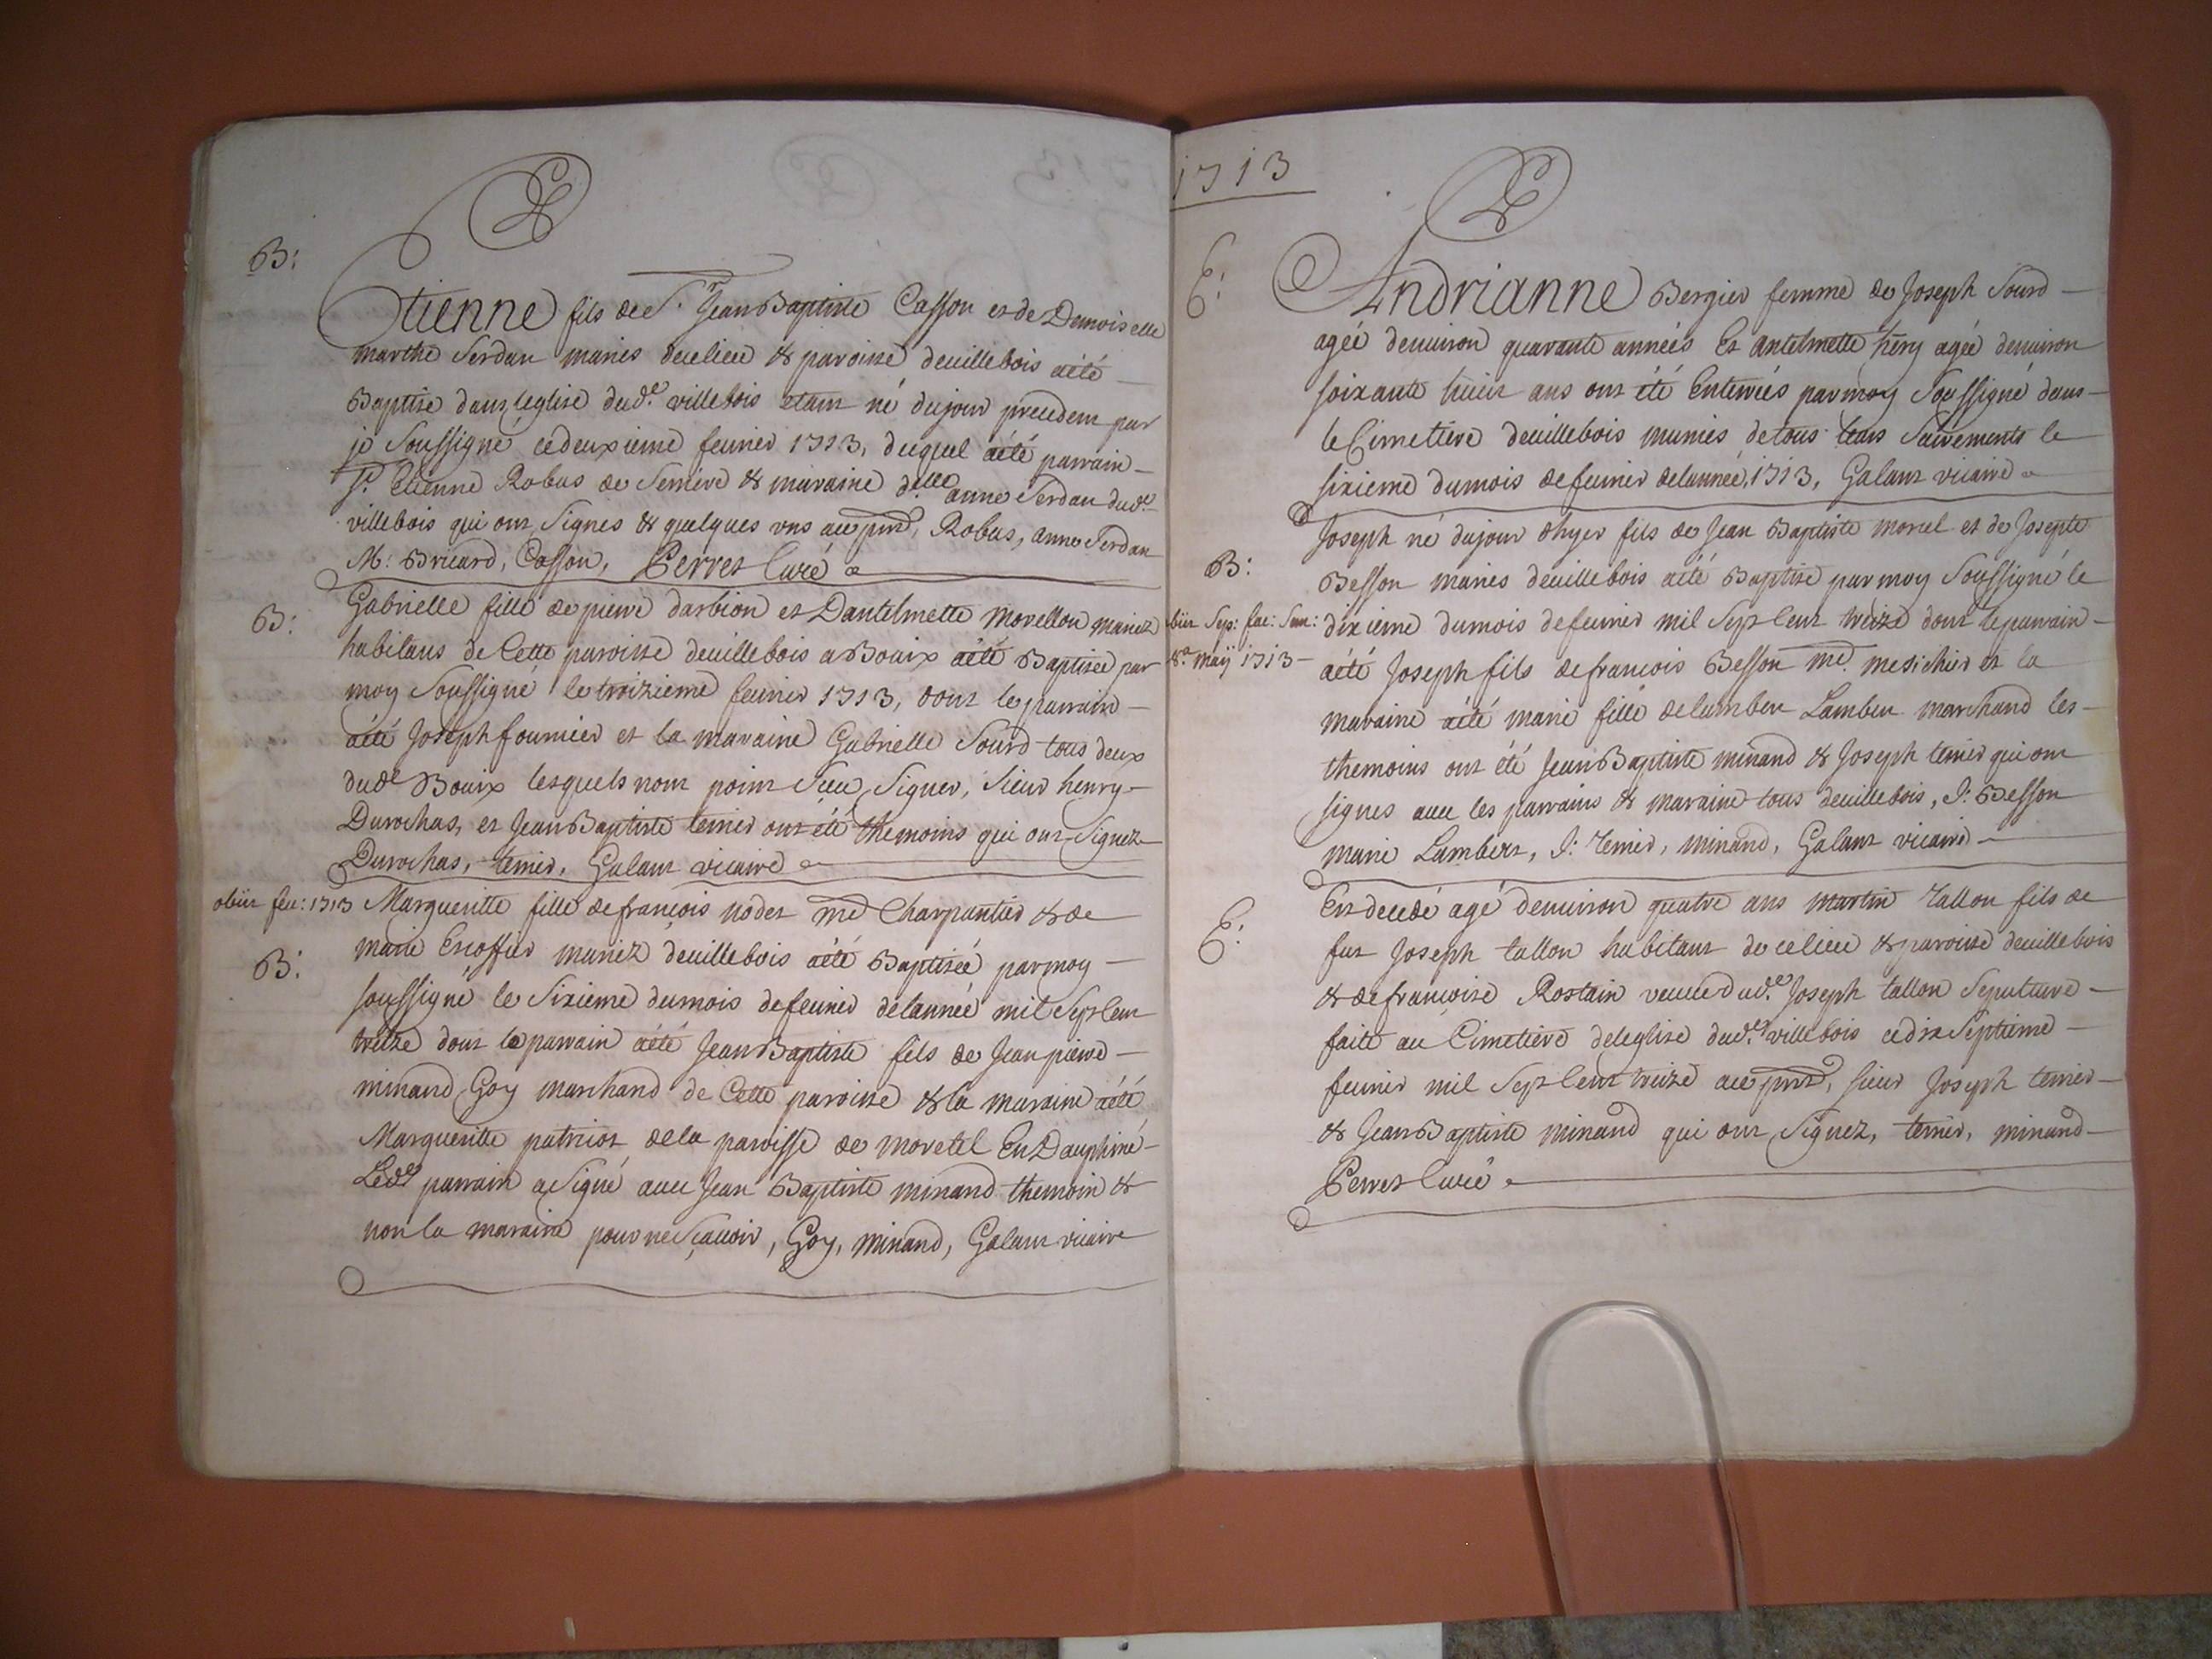 B:
Etienne fils de S.r Jean Baptiste Casson et de Demoiselle
marthe Serdan mariés decelieu & paroisse deuillebois aété
Baptisé dans leglise dud.t villebois etant né dujour precedent par
je Soussigné cedeuxieme feurier 1713, duquel aété parrain
S.r Etienne Robas de Serriere & maraine d.lle anne Serdan dud.t
villebois qui ont Signes & quelques vns au prnt, Robas, anne Serdan
M: Bricard, Casson, Perret Curé
B:
Gabrielle fille de pierre darbion et Dantelmette Morellon mariez
habitans de Cette paroisse deuillebois a Bouix aété Baptisée par
moy Soussigné le troizieme feurier 1713, dont le parrain
aété Joseph fournier et la maraine Gabrielle Sourd tous deux
dud.t Bouix lesquels nont point Sceu Signer, Sieur henry
Durochas, et Jean Baptiste ternier ont été themoins qui ont Signez
Durochas, ternier, Galant vicaire
obiit feu: 1713
B:
Margueritte fille de françois nodet me Charpantier & de
marie Escoffier mariez deuillebois aété Baptisée parmoy
soussigné le Sixieme dumois defeurier delannée mil Sept Cent
treize dont le parrain aété Jean Baptiste fils de Jean pierre
minand Goy marchand de Cette paroisse & la maraine aété
Margueritte patriot dela paroisse de moretel En Dauphiné
Led.t parrain a Signé auec Jean Baptiste minand themoin &
non la maraine pour ne Sçauoir, Goy, minand, Galant vicaire
1713
E:
Andrianne Bergier femme de Joseph Sourd
agée denuiron quarante années Et antelmette héry agée denuiron
soixante huict ans ont été Enterrées parmoy Soussigné dans
le Cimetiere deuillebois munies detous leurs Sacrements le
sixieme dumois de feurier delannée, 1713, Galant vicaire
B:
obiit Sep: fac: Sun:
8.a maÿ 1713
Joseph né dujour dhyer fils de Jean Baptiste morel et de Josepte
Besson mariés deuillebois aété Baptisé par moy Soussigné le
dixieme dumois defeurier mil Sept Cent treize dont leparrain
aété Joseph fils defrancois Besson me. mesichier et la
maraine aété marie fille delambert Lambert marchand les
themoins ont été Jean Baptiste minand & Joseph ternier qui ont
signes auec les parrains & maraine tous deuillebois, J: Besson
marie Lambert, J: ternier, minand, Galant vicaire
E:
Est decedé agé denuiron quatre ans martin tallon fils de
fut Joseph tallon habitant de celieu & paroisse deuillebois
& defrançoise Rostain veuue dud.t Joseph tallon Sepulture
faite au Cimetiere deleglise dud.t villebois cedix Septieme
feurier mil Sept Cent treize au prnt, sieur Joseph ternier
& Jean Baptiste minand qui ont Signez, ternier, minand
Perret Curé